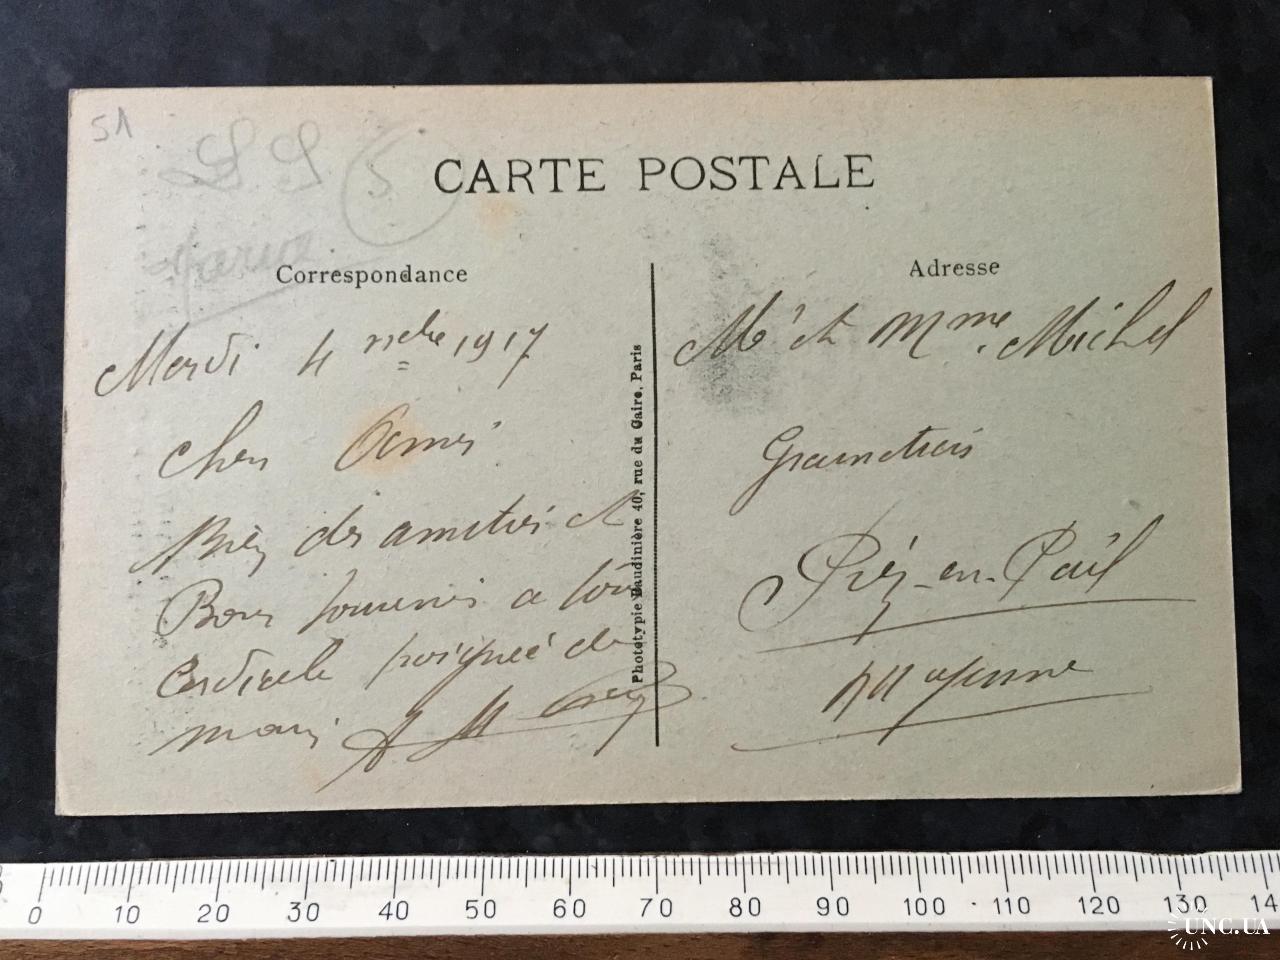 51
S.S. 5
Marne
CARTE POSTALE
Correspondance
Adresse
Mardi 4 xbre 1917
Cher Amis
Bien des amities et
Bons souvenirs a tous
Cordiale poignée de
main
Photótypie Baudinière 40, rue du Caire, Paris
Mr et Mme. Michel
Grainetiers
Préz-en-Pail
Mayenne
0 10 20 30 40 50 60 70 80 90 100 110 120 130 14
UNC.UA